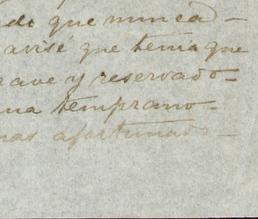 de que nunca
avisé que tenía que
rave y reservado
na temprano
mas afortunado